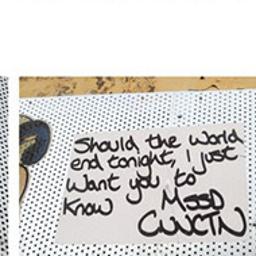 Should the world
end tonight, I just
Want you to
Know MSSD
CWNCTN